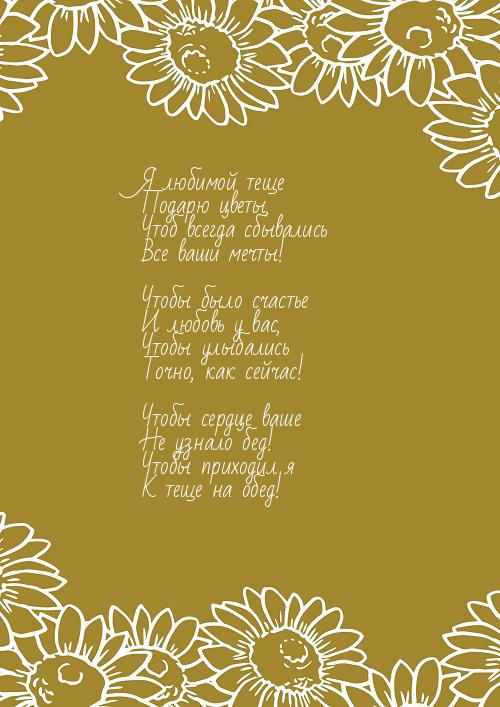 Я любимой теще
Подарю цветы,
Чтоб всегда сбывались
Все ваши мечты!
Чтобы было счастье
И любовь у вас,
Чтобы улыбались
Точно, как сейчас!
Чтобы сердце ваше
Не узнало бед!
Чтобы приходил я
К теще на обед!